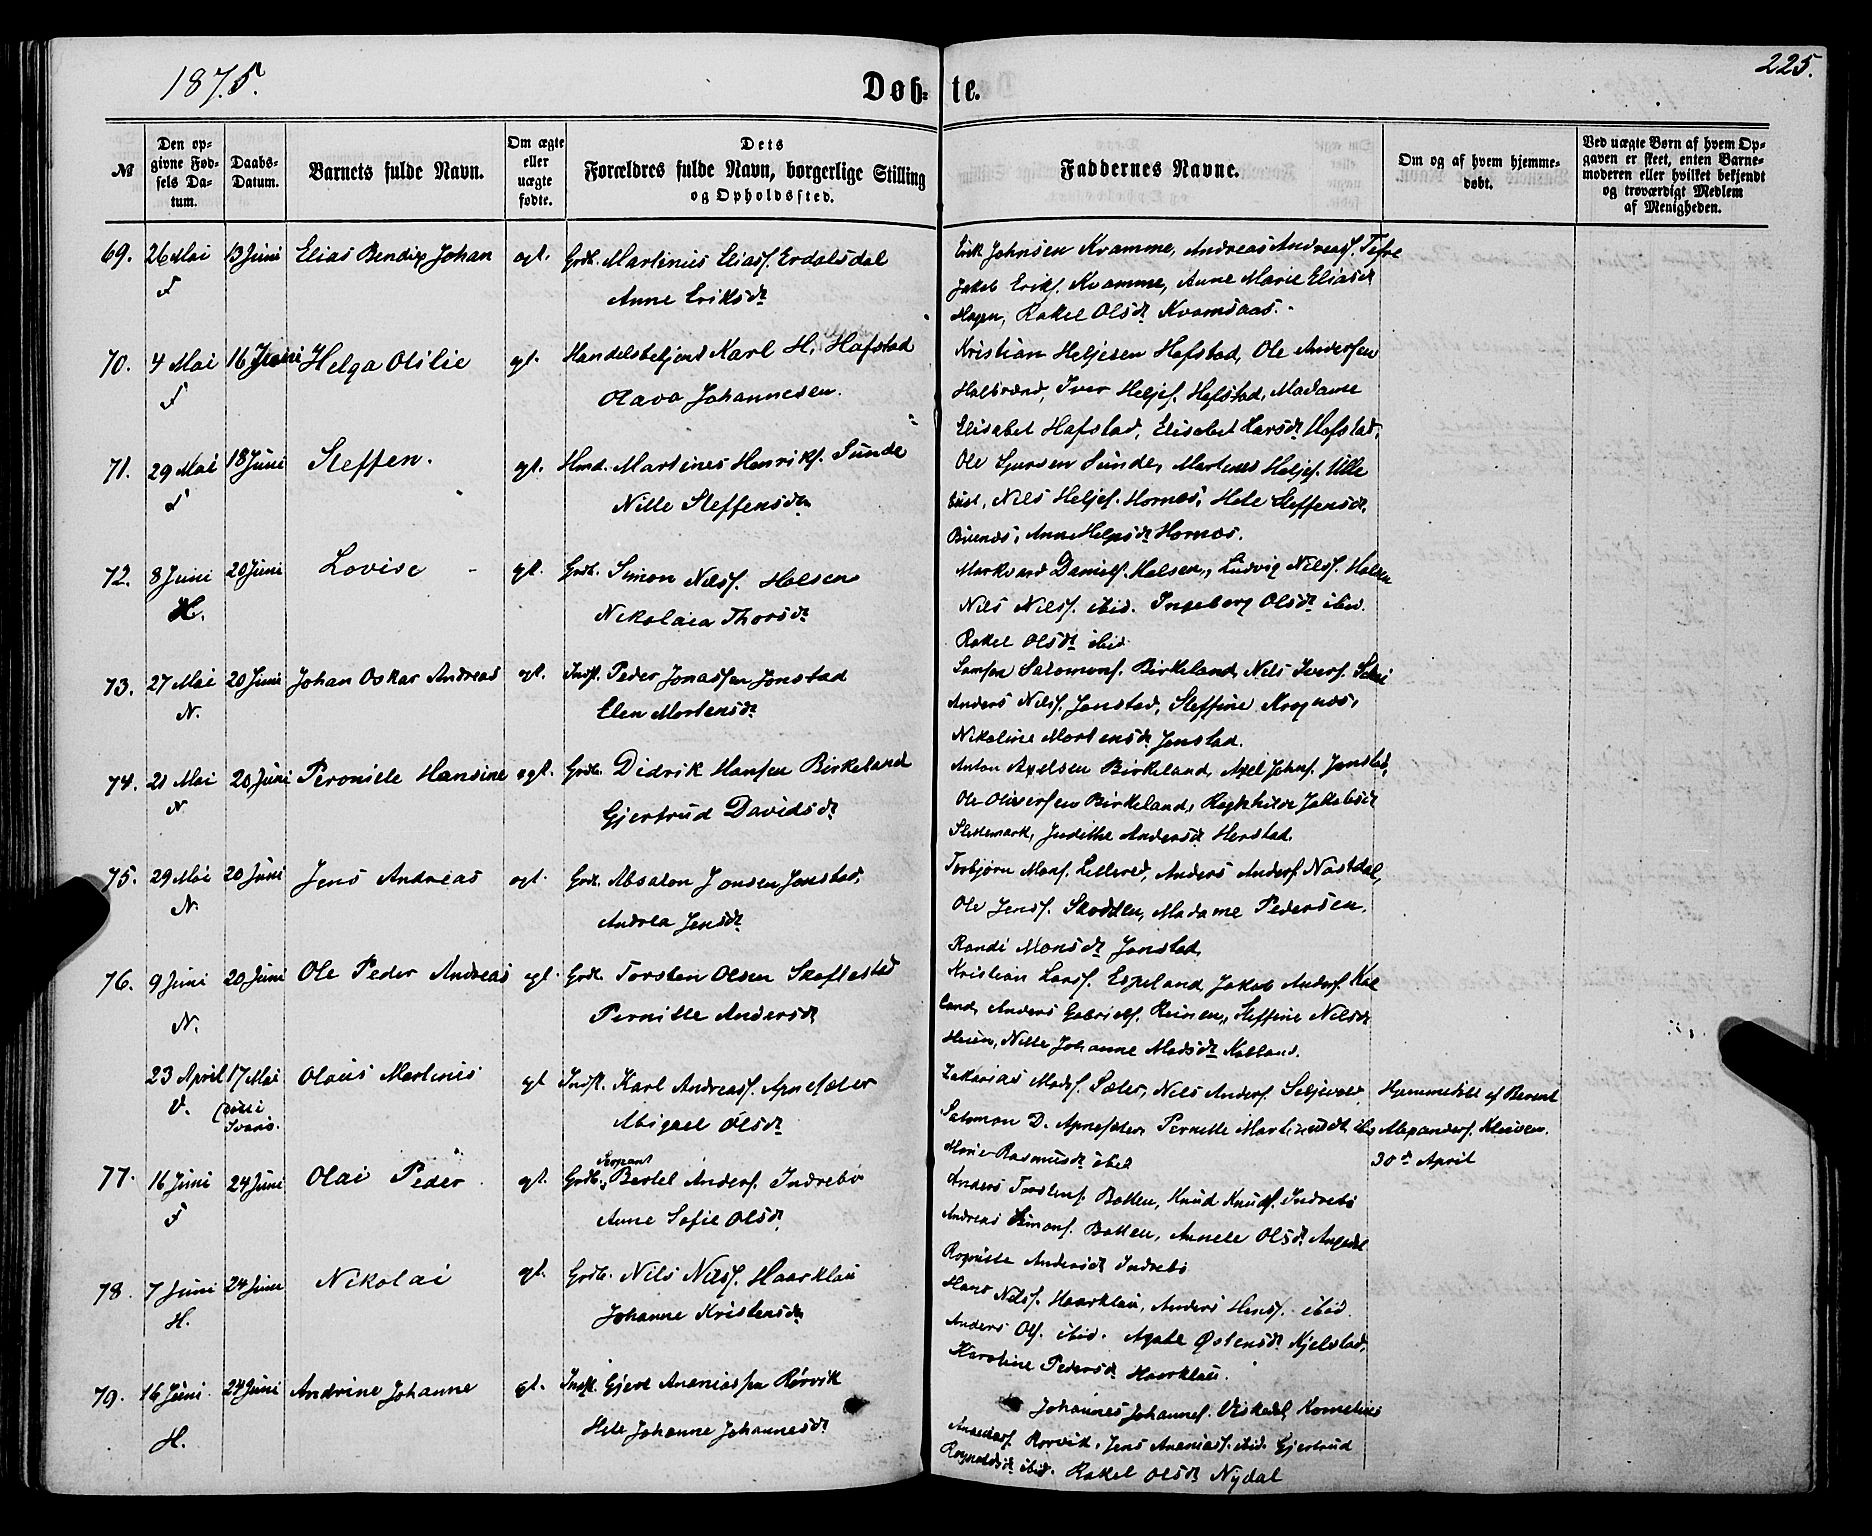 1875.
Døb=
te.
225.
№
Den op-
givne Fød-
sels Da-
tum.
Daabs-
Datum.
Barnets fulde Navn.
Om ægte
eller
uægte
fødte.
Dets
Forældres fulde Navn, borgerlige Stilling
og Opholdssted.
Faddernes Navne.
Om og af hvem hjemme-
døbt.
Ved uægte Børn af hvem Op-
gaven er skeet, enten Barne-
moderen eller hvilket bekjendt
og troværdigt Medlem
af Menigheden.
69. 26 Mai 13 Juni Elias Bendix Johan egt. Grdb. Martinus Eliass. Erdalsdal
F Anne Eriksdr
Erik Johnsen Kvamme, Andreas Andreass. Tefre
Jakob Eriks. Kvamme, Anne Marie Eliasdr
Hagen, Rakel Olsdr Kvamsaas.
70. 4 Mai 16 Juni Helga Otilie egt. Handelsbetjent Karl H. Hafstad
F Olava Johannesen.
Kristian Heljesen Hafstad, Ole Andersen
Halbrend, Iver Heljes. Hafstad, Madame
Elisabet Hafstad, Elisabet Larsdr Hafstad.
71. 29 Mai 18 Juni Steffen. egt. Hmd. Martines Henriks. Sunde
F Nille Steffensdr
Ole Sjursen Sunde, Martines Heljes. Ulle
lust, Nils Heljes. Hornes, Hele Steffensdr
Anne Helgesdr Hornes.
72. 8 Juni 20 Juni Lovise egt. Grdb. Simon Nilss. Holsen
H. Nikolaia Thorsdr
Markvard Daniels. Holsen, Ludvig Nilss. Holsen
Nils Nilss. ibid. Ingeborg Olsdr ibid.
Rakel Olsdr ibid
73. 27 Mai 20 Juni Johan Oskar Andreas egt. Indst. Peder Jonassen Jonstad
N. Elen Mortensdr
Samson Salomons. Birkeland, Nils Ivers.
Anders Nilss. Jonstad, Steffine Krognes,
Nikoline Mortensdr Jonstad.
74. 21 Mai 20 Juni Pernille Hansine egt. Grdb. Didrik Hansen Birkeland
N Gjertrud Davidsdr
Anton Axelsen Birkeland, Axel Johns. Jonstad,
Ole Oliversen Birkeland, Ragnhilde Jakobsdr
Slettemark, Judithe Andersdr Herstad.
75. 29 Mai 20 Juni Jens Andreas egt. Grdb. Absalon Jonsen Jonstad,
N. Andrea Jensdr
Torbjørn Mons. Anders Anders. Nastdal,
Ole Jenss. Skodden, Madame Pedersen,
Randi Monsdr Jonstad
76. 9 Juni 20 Juni Ole Peder Andreas egt. Grdb. Torsten Olsen Skaftestad
N. Pernille Andersdr
Kristian Larss. Espeland, Jakob Anders. Kal
land, Anders Gabriels. Reinen, Steffine Nilsdr
Nille Johanne Madsdr Kalland.
23 April 17 Mai Olaus Martinus egt Indst. Karl Andreass. Apnesæter
V. Abigael Olsdr
Zakarias Mads. Sæter, Nils Anders. Seljevold,
Salomon D. Apnesæter, Pernille Martinusdr ibid,
Marie Rasmusdr ibid
Hjemmedøbt af Berent
Alexanders. Kleiven.
30d April
77. 16 Juni 24 Juni Olai Peder egt. Grdb., Sergeant Bertel Anders. Indrebø
F Anne Sofie Olsdr
Anders Torstens. Botten, Knud Knuds. Indrebø
Andreas Simons. Botten, Annele Olsdr Angedal
Andersdr Indrebø
78. 7 Juni 24 Juni Nikolai egt. Grdb. Nils Nilss. Haarklau
H. Johanne Kristensdr
Hans Nilss. Haarklau, Anders Hanss. ibid.
Anders Ols. ibid. Agate Østensdr Kjelstad,
Karoline Pedersdr Haarklau.
79. 16 Juni 24 Juni Andrine Johanne egt. Indst. Gjert Ananiassen Rørvik
H. Hele Johanne Johannesdr
Johannes Johannes. Viskedal, Kornelius
Rørvik, Jens Ananiass. ibid. Gjertrud
Ragnaldsdr ibid. Rakel Olsdr Nydal